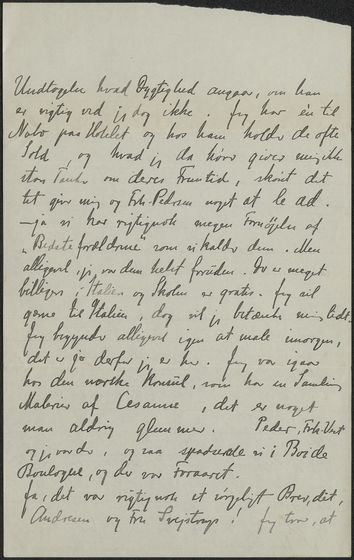 Undtagelse hvad Dygtighed angaar, om han
er rigtig ved jeg dog ikke. Jeg har én til
Nabo paa Hotelet og hos ham holder de ofte
Sold, og hvad jeg da hører giver mig ikke
store Tanker om deres Fremtid, skönt det
tit giver mig og Frk. Pedersen noget at le ad.
— ja vi har rigtignok megen Fornöjelse af
som vi kalder dem. Men
alligevel, jeg var dem helst foruden. Der er meget
billigere i Italien og Skolen er gratis. Jeg vil
gerne til Italien, dog vil jeg betænke mig lidt.
Jeg begynder alligevel igen at male imorgen,
det er jo derfor jeg er her. Jeg var igaar
hos den norske Konsul, som har en Samling
Malerier af Cesanne, det er noget
man aldrig glemmer. Peder, Frk
og jeg var der, og saa spadserede vi i Bois de
Boulogne, og der var Foraaret.
Ja, det var rigtignok et Brev, det,
Andresen og Frk ! Jeg tror, at